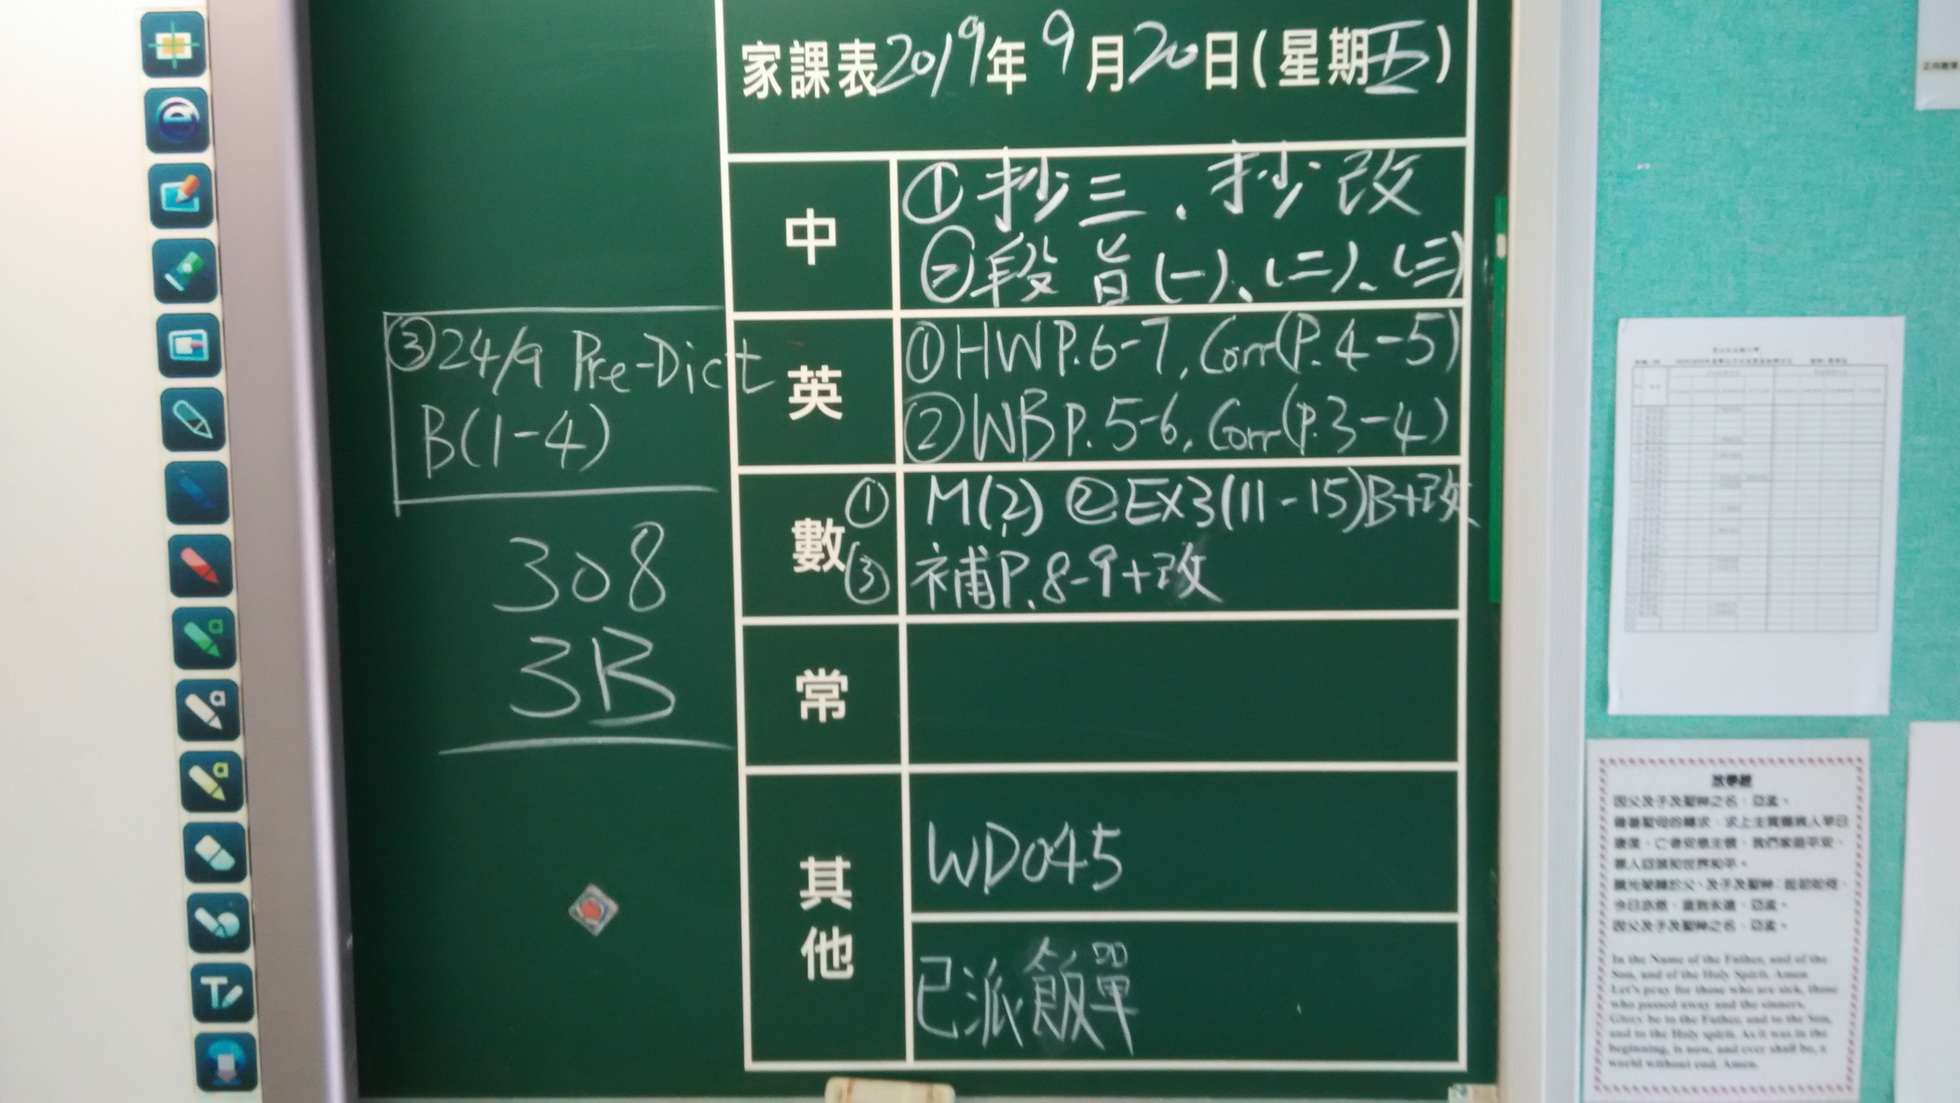 家課表2019年9月20日(星期五)
中
①抄三、抄改
②段旨(一)、(二)、(三)
英
①HWP.6-7, Corr(P.4-5)
②WBP.5-6, Corr(P.3-4)
③24/9 Pre-Dict
B(1-4)
數
① M(2) ②EX3(11-15)B+改
③ 補P.8-9+改
308
3B
常
其他
WD045
已派飯單
放學經
因父及子及聖神之名。亞孟。
因父及子及聖神之名。亞孟。
In the Name of the Father, and of the
Son, and of the Holy Spirit. Amen
Let's pray for those who are sick, those
who passed away and the sinners.
Glory be to the Father, and to the Son,
and to the Holy spirit. As it was in the
beginning, is now, and ever shall be, a
world without end. Amen.